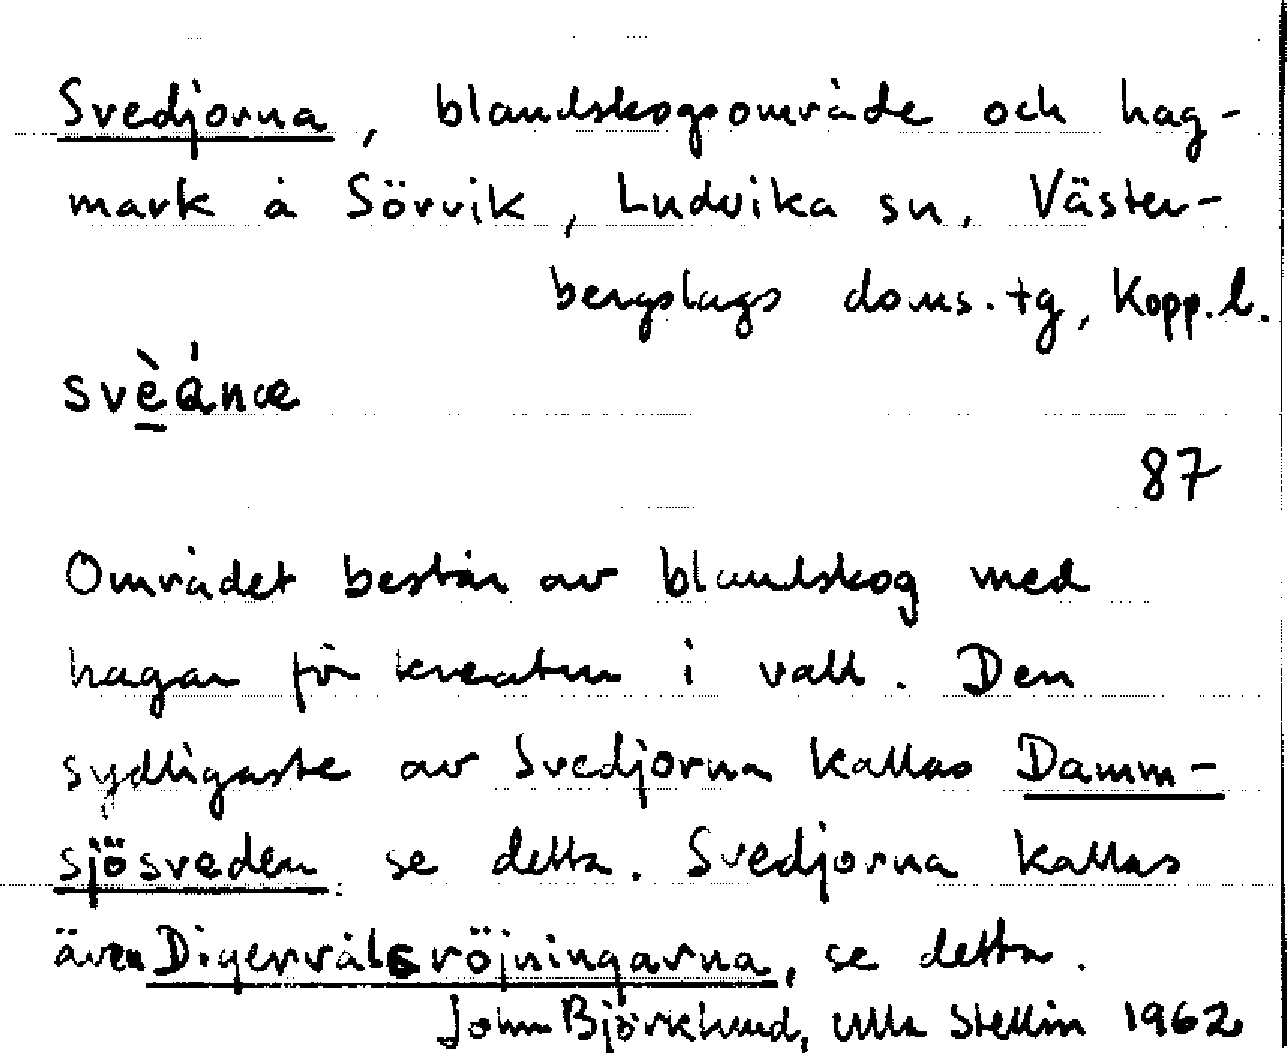 Svedjorna, blandskogsområde och hag-
mark å Sörvik, Ludvika sn. Väster-
bergslags doms.tg, Kopp.l.
svὲ̀ánæ
87
Området består av blandskog med
hagar för kreatur i vall. Den
sydligaste av Svedjorna kallas Damm-
sjösveden se detta. Svedjorna kallas
även Digervålsröjningarna, se detta.
John Björklund, Ulla Stellin 1962